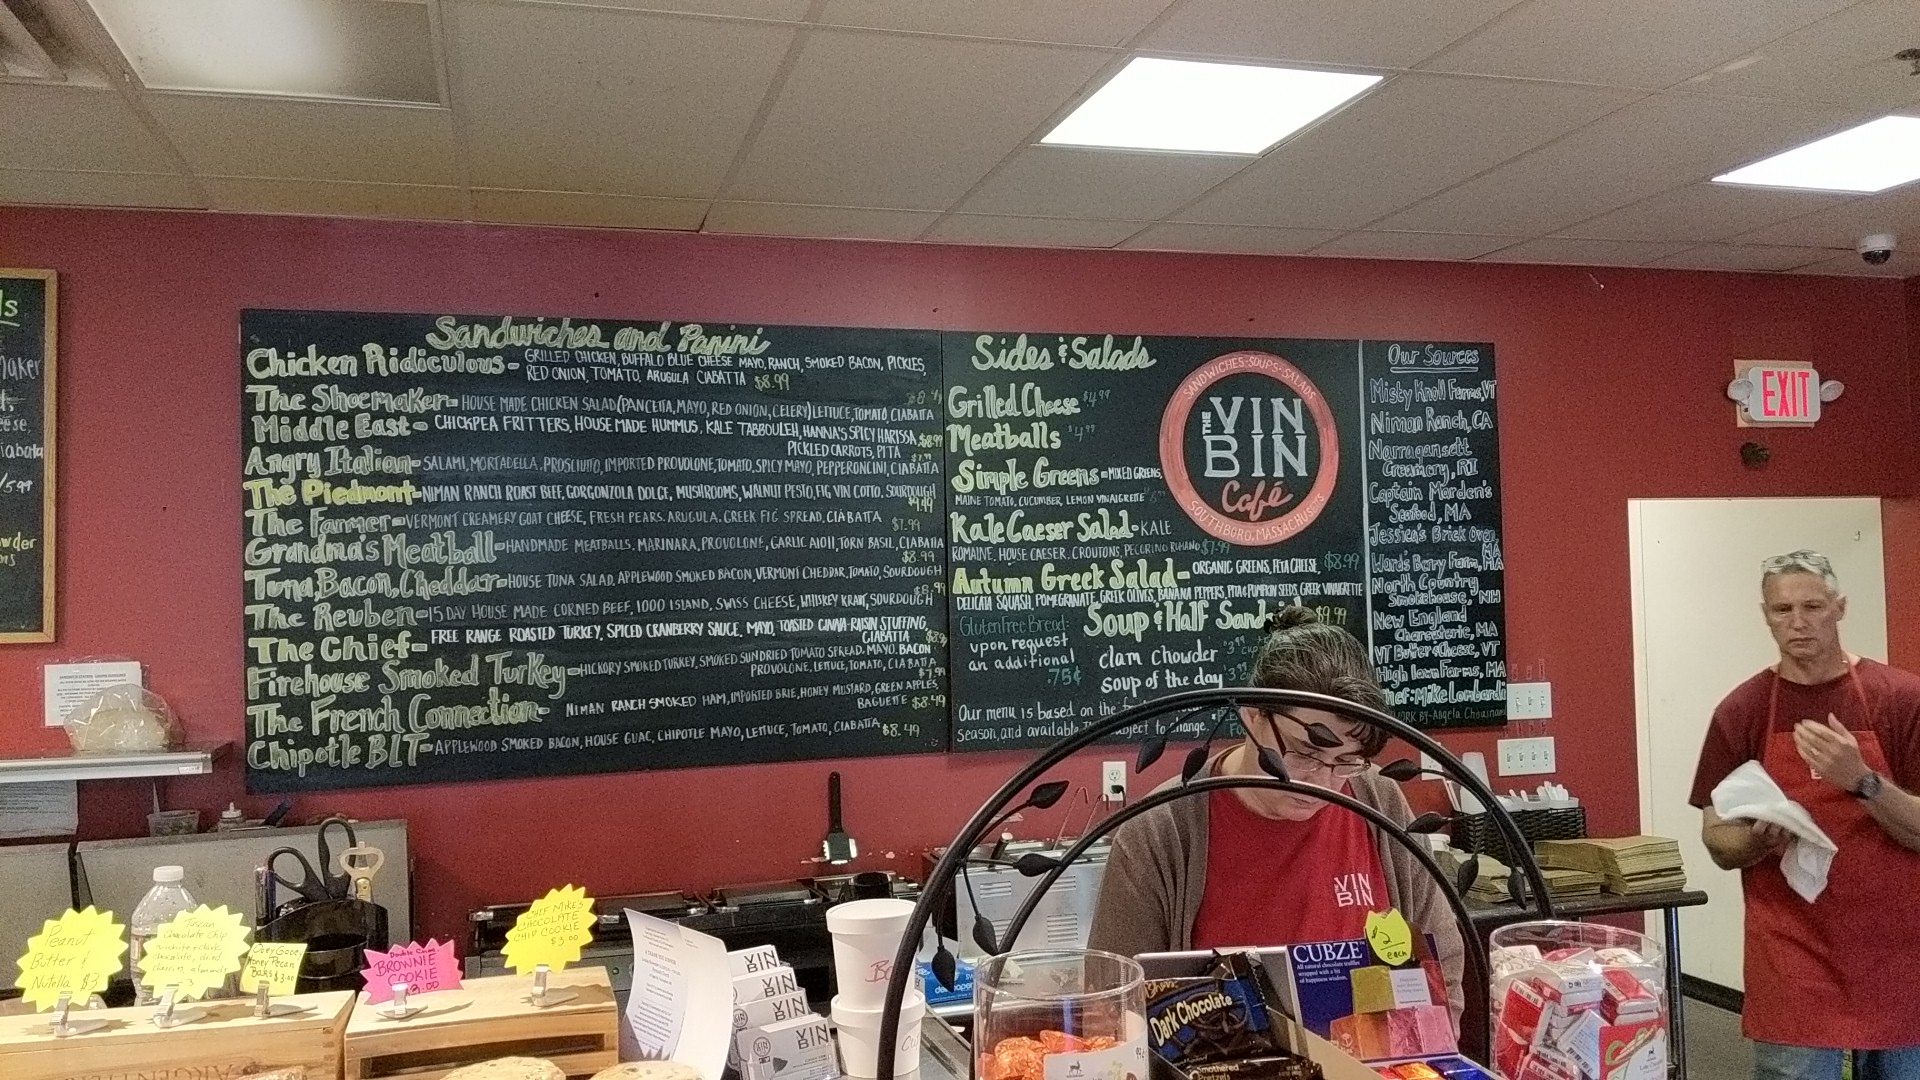 Sandwiches and Panini
Chicken Ridiculous - GRILLED CHICKEN, BUFFALO BLUE CHEESE MAYO, RANCH, SMOKED BACON, PICKLES,
RED ONION, TOMATO, ARUGULA CIABATTA $8.99
The Shoemaker - HOUSE MADE CHICKEN SALAD (PANCETTA, MAYO, RED ONION, CELERY) LETTUCE, TOMATO, CIABATTA
Middle East - CHICKPEA FRITTERS, HOUSE MADE HUMMUS, KALE TABBOULEH, HANNA'S SPICY HARISSA, $8.99
PICKLED CARROTS, PITA
Angry Italian - SALAMI, MORTADELLA, PROSCIUTTO, IMPORTED PROVOLONE, TOMATO, SPICY MAYO, PEPPERONCINI, CIABATTA
The Piedmont - NIMAN RANCH ROAST BEEF, GORGONZOLA DOLCE, MUSHROOMS, WALNUT PESTO, FIG VIN COTTO, SOURDOUGH
$9.49
The Farmer - VERMONT CREAMERY GOAT CHEESE, FRESH PEARS, ARUGULA, GREEK FIG SPREAD, CIABATTA $7.99
Grandma's Meatball - HANDMADE MEATBALLS, MARINARA, PROVOLONE, GARLIC AIOLI, TORN BASIL, CIABATTA
$8.99
Tuna, Bacon, Cheddar - HOUSE TUNA SALAD, APPLEWOOD SMOKED BACON, VERMONT CHEDDAR, TOMATO, SOURDOUGH
The Reuben - 15 DAY HOUSE MADE CORNED BEEF, 1000 ISLAND, SWISS CHEESE, WHISKEY KRAUT, SOURDOUGH
The Chief - FREE RANGE ROASTED TURKEY, SPICED CRANBERRY SAUCE, MAYO, TOASTED CINNA-RAISIN STUFFING,
CIABATTA
Firehouse Smoked Turkey - HICKORY SMOKED TURKEY, SMOKED SUNDRIED TOMATO SPREAD, MAYO, BACON
PROVOLONE, LETTUCE, TOMATO, CIABATTA
$7.99
The French Connection - NIMAN RANCH SMOKED HAM, IMPORTED BRIE, HONEY MUSTARD, GREEN APPLES,
BAGUETTE $8.49
Chipotle BLT - APPLEWOOD SMOKED BACON, HOUSE GUAC, CHIPOTLE MAYO, LETTUCE, TOMATO, CIABATTA $8.49
Sides & Salads
Grilled Cheese $4.99
Meatballs $4.99
Simple Greens - MIXED GREENS,
MAINE TOMATO, CUCUMBER, LEMON VINAIGRETTE
Kale Caeser Salad - KALE
ROMAINE, HOUSE CAESER, CROUTONS, PECORINO ROMANO $7.99
Autumn Greek Salad - ORGANIC GREENS, FETA CHEESE, $8.99
DELICATA SQUASH, POMEGRANATE, GREEK OLIVES, BANANA PEPPERS, PITA & PUMPKIN SEEDS, GREEK VINAIGRETTE
Soup & Half $9.99
Gluten Free Bread:
upon request
an additional
.75¢
clam chowder
soup of the day
Our menu is based on the
season, and available subject to change.
SANDWICHES-SOUPS-SALADS
THE VIN BIN
Café
SOUTHBORO, MASSACHUSETTS
Our Sources
Misty Knoll Farms, VT
Niman Ranch, CA
Narragansett
Creamery, RI
Captain Marden's
Seafood, MA
Jessica's Brick Oven,
MA
Ward's Berry Farm, MA
North Country
Smokehouse, NH
New England
Charcuterie, MA
VT Butter & Cheese, VT
High lawn Farms, MA
Chef: Mike Lombardi
WORK BY - Angela
EXIT
Peanut
Butter &
Nutella $3
Tuscan
Chocolate Chip
white & dark
chocolate, dried
cherries, almonds
Ooey Gooey
Honey Pecan
Bars $3.00
Double Choc
BROWNIE
COOKIE
CHEF MIKE'S
CHOCOLATE
CHIP COOKIE
$3.00
VIN
BIN
VIN
BIN
VIN
BIN
VIN
BIN
$2
each
CUBZE
All natural chocolate truffles
wrapped with a bit
of happiness wisdom.
Dark Chocolate
Smothered
Pretzels